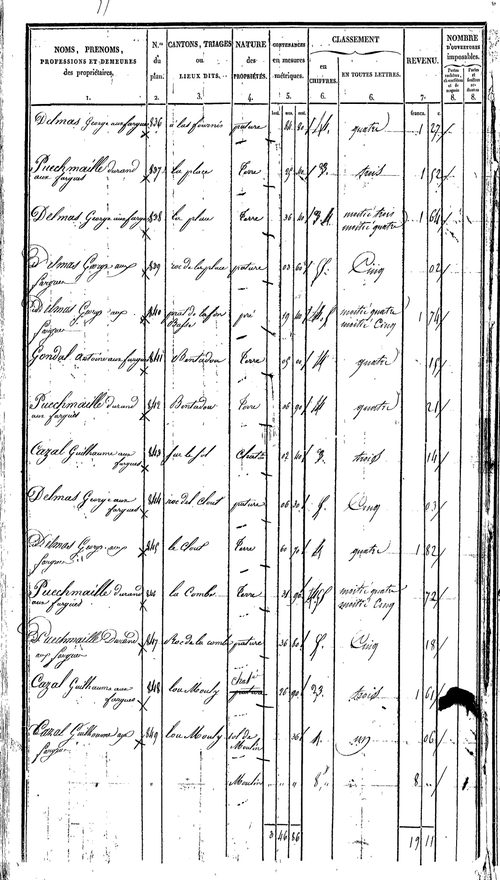 NOMS, PRENOMS, PROFESSIONS ET DEMEURES des propriétaires. 1.
N.os du plan. 2.
CANTONS, TRIAGES ou LIEUX DITS. 3.
NATURE des PROPRIÉTÉS. 4.
CONTENANCES en mesures métriques. 5.
CLASSEMENT
en CHIFFRES. 6.
EN TOUTES LETTRES. 6.
REVENU. 7.
NOMBRE D'OUVERTURES imposables.
8. 8.
francs. c.
Delmas George aux fargues 836 a las fournis pature 84 80 4 quatre 1 27
Puechmaille durand aux fargues 837 la place Terre 25 40 3 trois 1 52
Delmas George aux fargues 838 la place Terre 36 40 3.4 moitié trois moitié quatre 1 64
Delmas George aux fargues 839 roc de la place pature 03 60 5 Cinq 02
Delmas George aux fargues 840 prat de lafon Basse pré 19 40 4.5 moitié quatre moitié Cinq 1 74
Gondal Antoine aux fargues 841 Bontadou Terre 05 4 quatre 15
Puechmaille durand aux fargues 842 Bontadou Terre 06 90 4 quatre 21
Cazal Guilhaume aux fargues 843 02 40 3 trois 14
Delmas George aux fargues 844 roc del Clout pature 06 30 5 Cinq 03
Delmas George aux fargues 845 le Clout Terre 60 70 4 quatre 1 82
Puechmaille durand aux fargues 846 la Combe Terre 31 90 4.5 moitié quatre moitié Cinq 72
Puechmaille Durand aux fargues 847 Roc de la combe pature 36 80 5 Cinq 18
Cazal Guilhaume aux fargues 848 lou Mouly 26 90 3 trois 1 61
Cazal Guilhaume aux fargues 849 lou Mouly sol de Moulin 36 1 un 06
Moulin " " 8 8 "
3 46 86 19 11